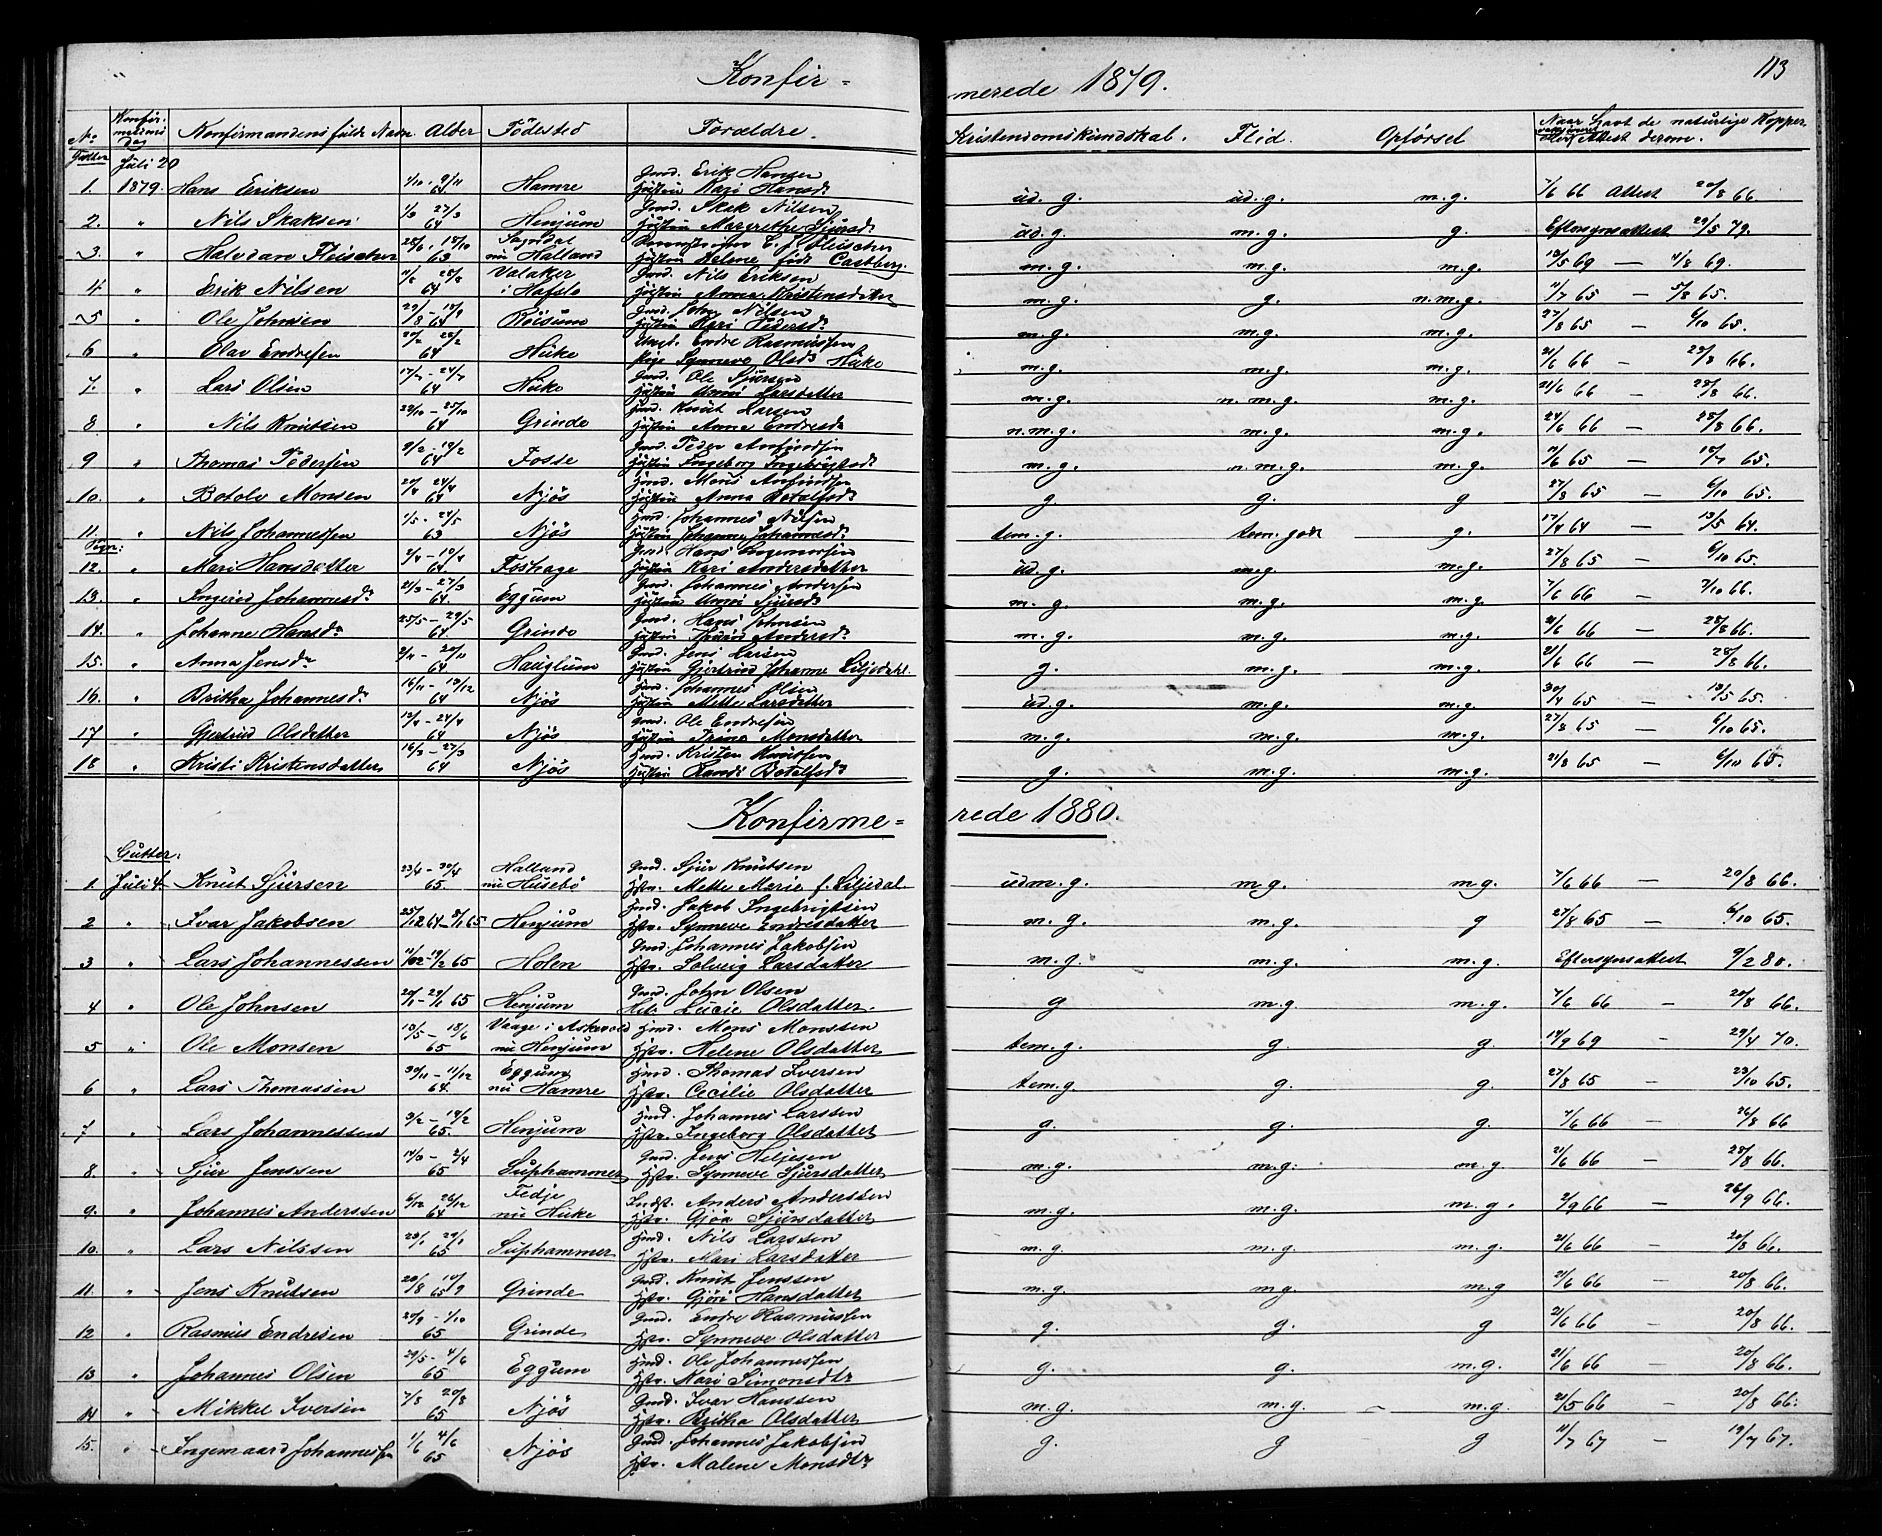 Konfir=
merede 1879.
113
No Konfirmations Dag Konfirmandens fulde Navn Alder Födested Forældre. Kristendomskundskab. Flid. Opførsel Naar havt de naturlige Kopper
Attest derom.
Gutter Juli 20
1. 1879. Hans Eriksen 1/10 - 9/11 64 Hamre Gmd. Erik Hansen Hustru Kari Hansdr ud. g. ud. g. m. g. 7/6 66 Attest 20/8 66
2. " Nils Skaksen 1/3 27/3 64 Henjum Gmd. Skak Nilsen Hustru Margrethe Sjursdr ud. g. m. g. g. Eftersynsattest 29/5 79.
3. " Halvdan Fleischer 63 Sogndal nu Halland Fleischer Hustru Helene född Castberg. m. g. m. g. m. g. 69 — 4/8 69.
4. " Erik Nilsen 64 Valaker i Hafslo Gmd. Nils Eriksen Hustru Anna Kristensdatter m. g. g. n. m. g. 11/7 65 — 5/8 65.
5 " Ole Johnsen 64 Röisum Gmd. John Nilsen Hustru Kari Pedersdr m. g. m. g. m. g. 27/8 65 — 6/10 65.
6 " Olav Endresen 64 Huke Ungk. Endre Rasmussen Pige Synneve Olsdr Huke m. g. m. g. m. g. 21/6 66 — 28/8 66.
7. " Lars Olsen 64 Huke Gmd. Ole Sjursen Hustru Unni Larsdatter m. g. n. m. g. m. g. 21/6 66 — 28/8 66.
8 " Nils Knutsen 64 Grinde Hmd. Knut Larsen Hustru Anna Endresdr n. m. g. m. g. m. g. 66 — 28/8 66.
9 " Thomas Pedersen 64 Fosse Gmd. Peder Anfindsen Hustru Ingeborg Ingebrigtsdr m. g. n. m. g. m. g. 11/6 65 — 65.
10. " Botolv Monsen 64 Njös Hmd. Mons Anfindsen Hustru Anna Botolfsdr g. g. g 27/8 65 — 6/10 65.
11. " Nils Johannessen 1/5 - 24/5 63 Njös Hmd. Johannes Nilsen Hustru Johanne Johannesdr tem. g. tem. godt g. 17/4 64 — 13/5 64.
Piger:
12. " Mari Hansdatter 64 Foshage Gmd. Hans Ingemarsen Hustru Kari Andersdatter ud. g. m. g. m. g. 27/8 65 — 6/10 65.
13. " Ingerid Johannesdr 64 Eggum Gmd. Johannes Andersen Hustru Unni Sjursdr m. g. m. g. m. g. 7/6 66 — 7/10 66.
14. " Johanne Hansdr 64 Grinde Gmd. Hans Johnsen Hustru Andersdr m. g. m. g. m. g. 21/6 66 — 28/8 66.
15. " Anna Jensdr 64 Hauglum Gmd. Jens Larsen Hustru Gjertrud Johanne Liljedahl. g. m. g. m. g. 21/6 66 — 28/8 66.
16. " Britha Johannesdr 16/11 - 13/12 64 Njös Hmd. Johannes Olsen Hustru Mette Larsdatter ud. g. m. g. m. g. 30/4 65 — 13/5 65.
17 " Gjertrud Olsdatter 64 Njös Gmd. Ole Endresen Hustru Trina Monsdatter m. g. m. g. m. g. 27/8 65 — 6/10 65.
18 " Kristi Kristensdatter 16/3 - 27/3 64 Njös Hmd. Kristen Knutsen Hustru Randi Botolfsdr g. m. g. m. g. 65 — 6/10 65.
Konfirme=
rede 1880.
Gutter:
1. Juli 4. Knut Sjursen 23/4 - 30/4 65. Halland nu Husebö Gmd. Sjur Knutsen Hstr. Mette Marie f. Liljedal udm. g. m. g. m. g. 7/6 66 — 20/8 66.
2 " Ivar Jakobsen 25/12 64 - 8/1 65 Henjum Hmd. Jakob Ingebrigtsen Hstr. Synneve Endresdatter m. g. m. g. g 27/8 65 — 6/10 65.
3 " Lars Johannessen 65 Holen Gmd. Johannes Jakobsen Hstr. Solveig Larsdatter m. g. m. g. m. g. Eftersynsattest 9/2 80.
4 " Ole Johnsen 20/1 - 29/1 65 Henjum Gmd. John Olsen Lucie Olsdatter. g m. g m. g. 7/6 66 — 20/8 66.
5 " Ole Monsen 13/5 - 18/6 65 Vaage i Askevold nu Henjum Hmd. Mons Monssen Hstr. Helene Olsdatter tem. g. g. g. 14/9 69 — 29/4 70.
6 " Lars Thomassen 30/11 - 11/12 64. Eggum nu Hamre Hmd. Thomas Iversen Hstr. Cecilie Olsdatter tem. g g. g. 27/8 65 — 23/10 65.
7. " Lars Johannessen 3/2 - 19/2 65. Henjum Hmd. Johannes Larssen Hstr. Ingeborg Olsdatter g. g. g. 7/6 66 — 26/8 66
8. " Sjur Jenssen 65 Suphammer Gmd. Jens Heljesen Hstr. Synneve Sjursdatter m. g. m. g. m. g 21/6 66 — 28/8 66.
9. " Johannes Anderssen 6/12 26/12 64 Fedje nu Huke Indst. Anders Anderssen Hstr. Gjöa Sjursdatter m. g. m. g. m. g. 2/9 66 — 26/9 66.
10. " Lars Nilssen 65 Suphammer Hmd. Nils Larssen Hstr. Mari Larsdatter m. g. m. g. m. g. 21/6 66 — 20/8 66.
11. " Jens Knutsen 20/8 10/9 65 Grinde Gmd. Knut Jenssen Hstr. Gjöri Hansdatter m. g. m g. m. g 21/6 66 — 20/8 66.
12 " Rasmus Endresen 20/9 - 1/10 65 Grinde Gmd. Endre Rasmussen Hstr. Synneve Olsdatter g. g. g 21/6 66 — 20/8 66.
13 " Johannes Olsen 29/5 - 4/6 65 Eggum Hmd. Ole Johannessen Hstr. Kari Simonsdtr g. g. m. g. 21/6 66 — 20/8 66.
14 " Mikkel Iversen 7/8 20/8 65 Njös Gmd. Ivar Hanssen Hstr. Britha Olsdatter m. g. m. g. m. g. 21/5 66 — 20/8 66.
15. " Ingemaard Johannessen 1/6 4/6 65 Njös Gmd. Johannes Jakobsen Hstr. Malene Monsdtr g. g g 11/7 67 — 19/7 67.